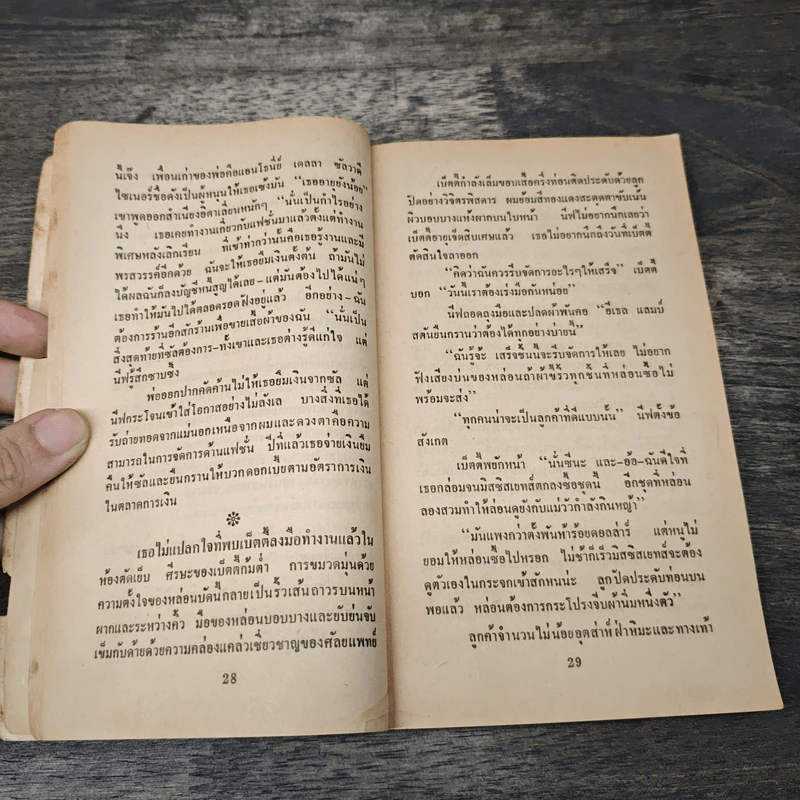 นี้เจ๊ง เพื่อนเก่าของพ่อคือแอนโธนี่ย์ เดลลา ซัลวาดี
ไซเนอร์ซื่อดังเป็นผู้หนุนให้เธอเซ้งมัน “เธออายุยังน้อย”
เขาพูดออกสำเนียงอิตาเลียนหนักๆ “นั่นเป็นกำไรอย่าง
นึง เธอเคยทำงานเกี่ยวกับแฟชั่นมาแล้วตั้งแต่ทำงาน
พิเศษหลังเลิกเรียน ที่เข้าท่ากว่านั้นคือเธอรู้งานและมี
พรสวรรค์อีกด้วย ฉันจะให้เธอยืมเงินตั้งต้น ถ้ามันไม่
ได้ผลฉันก็ลงบัญชีหนี้สูญได้เลย-แต่มันต้องไปได้แน่ๆ
เธอทำให้มันไปได้ตลอดรอดฝั่งอยู่แล้ว อีกอย่าง-ฉัน
ต้องการร้านอีกสักร้านเพื่อขายเสื้อผ้าของฉัน “นั่นเป็น
สิ่งสุดท้ายที่ซัลต้องการ-ทั้งเขาและเธอต่างรู้ดีแก่ใจ แต่
นีฟรู้สึกซาบซึ้ง
พ่อออกปากคัดค้านไม่ให้เธอยืมเงินจากซัล แต่
นีฟกระโจนเข้าใส่โอกาสอย่างไม่ลังเล บางสิ่งที่เธอได้
รับถ่ายทอดจากแม่นอกเหนือจากผมและดวงตาคือความ
สามารถในการจัดการด้านแฟชั่น ปีที่แล้วเธอจ่ายเงินยืม
คืนให้ซัลและยืนกรานให้บวกดอกเบี้ยตามอัตราการเงิน
ในตลาดการเงิน
เธอไม่แปลกใจที่พบเบ็ตตี้ลงมือทำงานแล้วใน
ห้องตัดเย็บ ศีรษะของเบ็ตตี้ก้มต่ำ การขมวดมุ่นด้วย
ความตั้งใจของหล่อนบัดนี้กลายเป็นริ้วเส้นถาวรบนหน้า
ผากและระหว่างคิ้ว มือของหล่อนบอบบางและยับย่นจับ
เข็มกับด้ายด้วยความคล่องแคล่วเชี่ยวชาญของศัลยแพทย์
28
เบ็ตตี้กำลังเล็มขอบเสื้อครึ่งท่อนติดประดับด้วยลูก
ปัดอย่างวิจิตรพิสดาร ผมย้อมสีทองแดงสะดุดตาขับเน้น
ผิวบอบบางแห้งผากบนใบหน้า นีฟไม่อยากนึกเลยว่า
เบ็ตตี้อายุเจ็ดสิบเศษแล้ว เธอไม่อยากนึกถึงวันที่เบ็ตตี้
ตัดสินใจลาออก
“คิดว่าฉันควรรีบจัดการอะไรๆให้เสร็จ” เบ็ตตี้
บอก “วันนี้เราต้องเร่งมือกันหน่อย”
นีฟถอดถุงมือและปลดผ้าพันคอ “อีเธล แลมบ์
สตันยืนกรานว่าต้องได้ทุกอย่างบ่ายนี้”
“ฉันรู้จ้ะ เสร็จชิ้นนี้จะรีบจัดการให้เลย ไม่อยาก
ฟังเสียงบ่นของหล่อนถ้าผ้าขี้ริ้วทุกชิ้นที่หล่อนซื้อไม่
พร้อมจะส่ง”
“ทุกคนน่าจะเป็นลูกค้าที่ดีแบบนั้น” นีฟตั้งข้อ
สังเกต
เบ็ตตี้พยักหน้า “นั่นซีนะ และ-อ้อ-ฉันดีใจที่
เธอกล่อมจนมิสซิสเยทส์ตกลงซื้อชุดนี้ อีกชุดที่หล่อน
ลองสวมทำให้หล่อนดูยังกับแม่วัวกำลังกินหญ้า”
“มันแพงกว่าตั้งพันห้าร้อยดอลล่าร์ แต่หนูไม่
ยอมให้หล่อนซื้อไปหรอก ไม่ช้าก็เร็วมิสซิสเยทส์จะต้อง
ดูตัวเองในกระจกเข้าสักหนน่ะ ลูกปัดประดับท่อนบน
พอแล้ว หล่อนต้องการกระโปรงจีบผ้านิ่มหนึ่งตัว”
ลูกค้าจำนวนไม่น้อยอุตส่าห์ฝ่าหิมะและทางเท้า
29